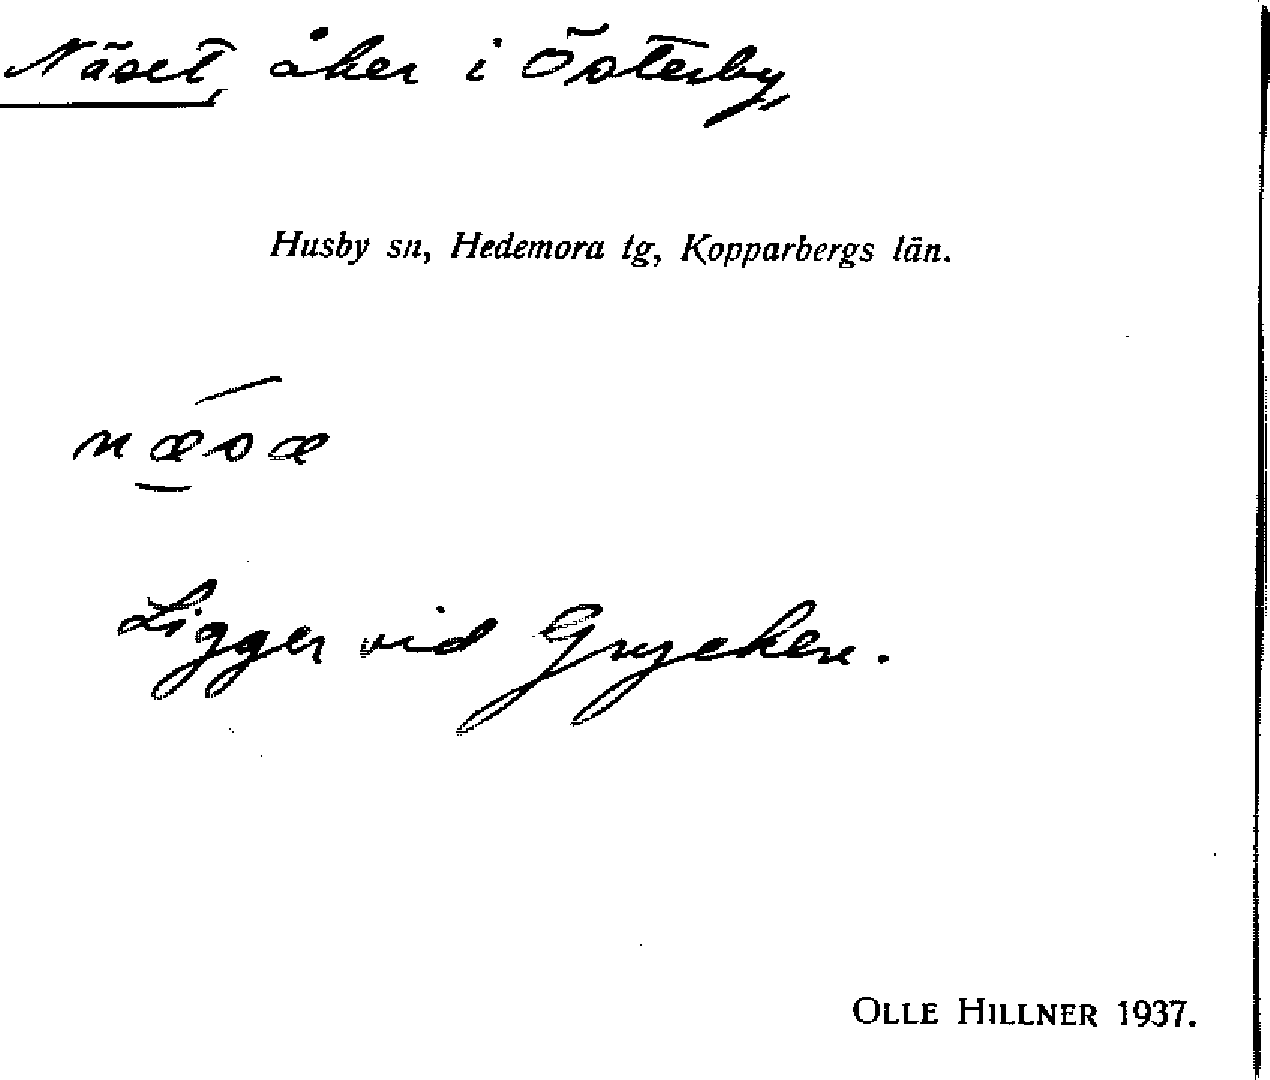 Näset, åker i Österby,
Husby sn, Hedemora tg, Kopparbergs län.
næsæ
Ligger vid Grycken.
OLLE HILLNER 1937.